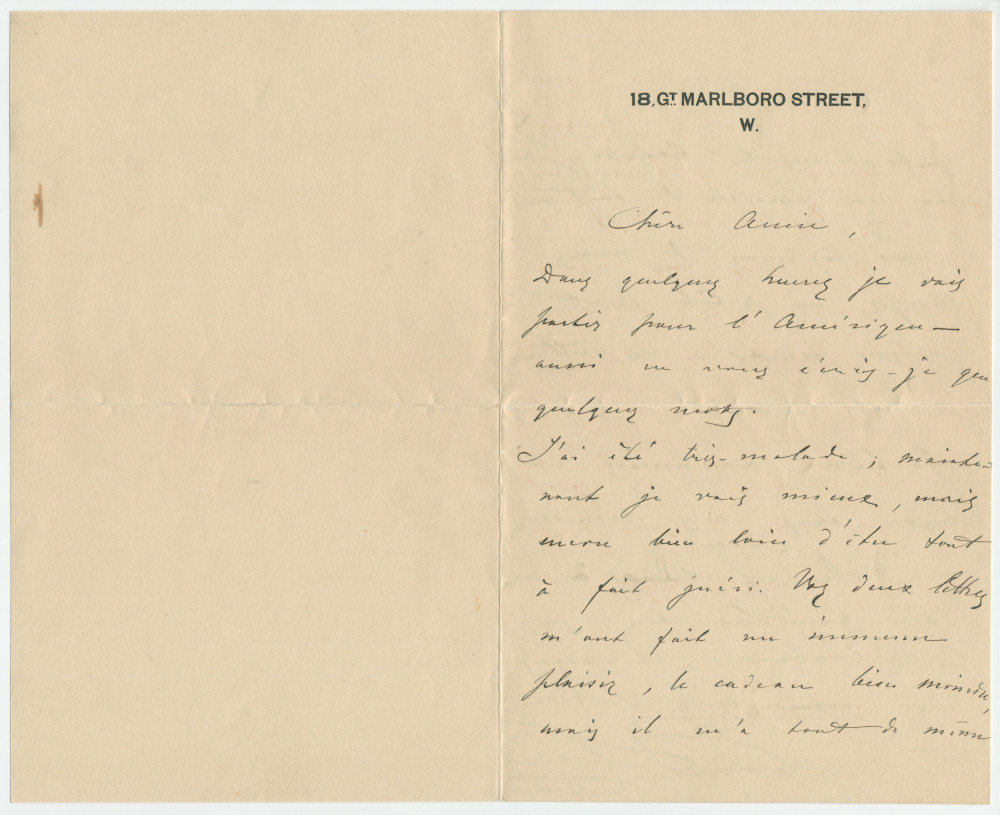 18, GT. MARLBORO STREET,
W.
Chère Amie,
Dans quelques heures je vais
partir pour l'Amérique —
aussi ne vous écris-je que
quelques mots.
J'ai été très-malade ; mainte-
nant je vais mieux, mais
encore bien loin d'être tout
à fait guéri. Vos deux lettres
m'ont fait un immense
plaisir, le cadeau bien moindre,
mais il m'a tout de même